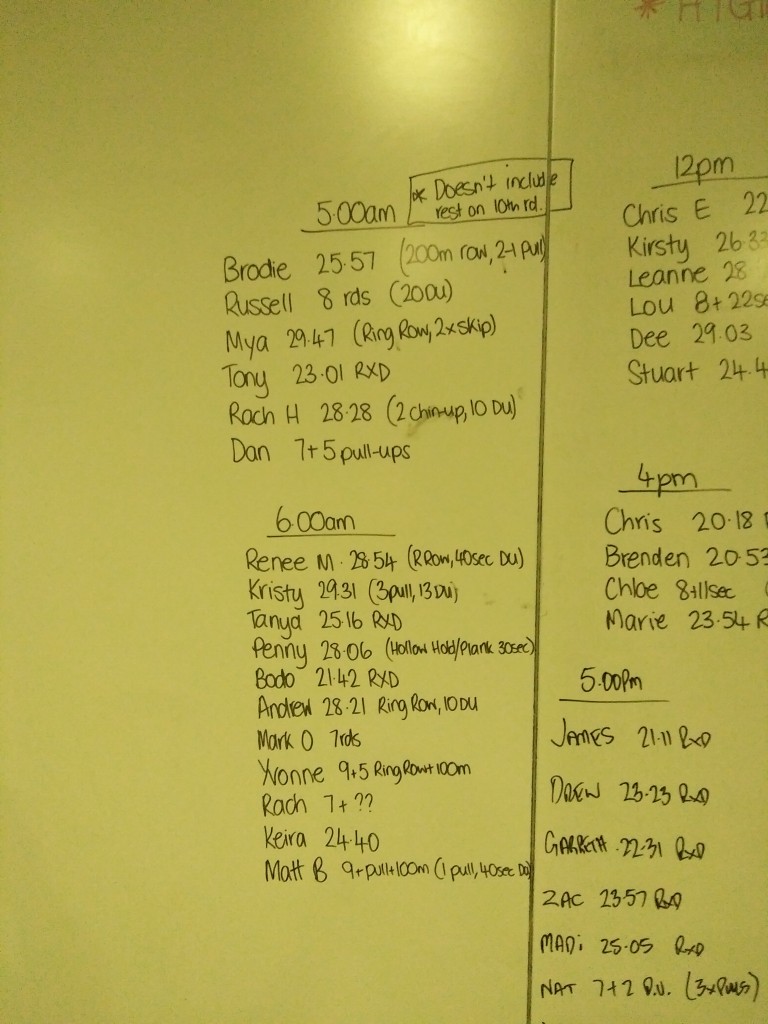 * Doesn't include
rest on 10th rd.
5:00am
Brodie 25.57 (200m row, 2-1 pull)
Russell 8 rds (20DU)
Mya 29.47 (Ring Row, 2xskip)
Tony 23.01 RXD
Rach H 28.28 (2 chin-up, 10 DU)
Dan 7+5 pull-ups
6:00am
Renee M. 28.54 (R Row, 40sec DU)
Kristy 29.31 (3pull, 13DU)
Tanya 25.16 RXD
Penny 28.06 (Hollow Hold/Plank 30sec)
Bodo 21.42 RXD
Andrew 28.21 Ring Row, 10DU
Mark O 7rds
Yvonne 9+5 Ring Row+100m
Rach 7+??
Keira 24.40
Matt B 9+pull+100m (1 pull, 40sec DU)
12pm
Chris E 22
Kirsty 26.33
Leanne 28
Lou 8+22se
Dee 29.03
Stuart 24.4
4pm
Chris 20.18
Brenden 20.53
Chloe 8+11sec
Marie 23.54 R
5:00pm
JAMES 21.11 RxD
DREW 23.23 RxD
GARRETH 22.31 RxD
ZAC 23.57 RxD
MADi 25.05 RxD
NAT 7+2 P.U. (3xPulls)